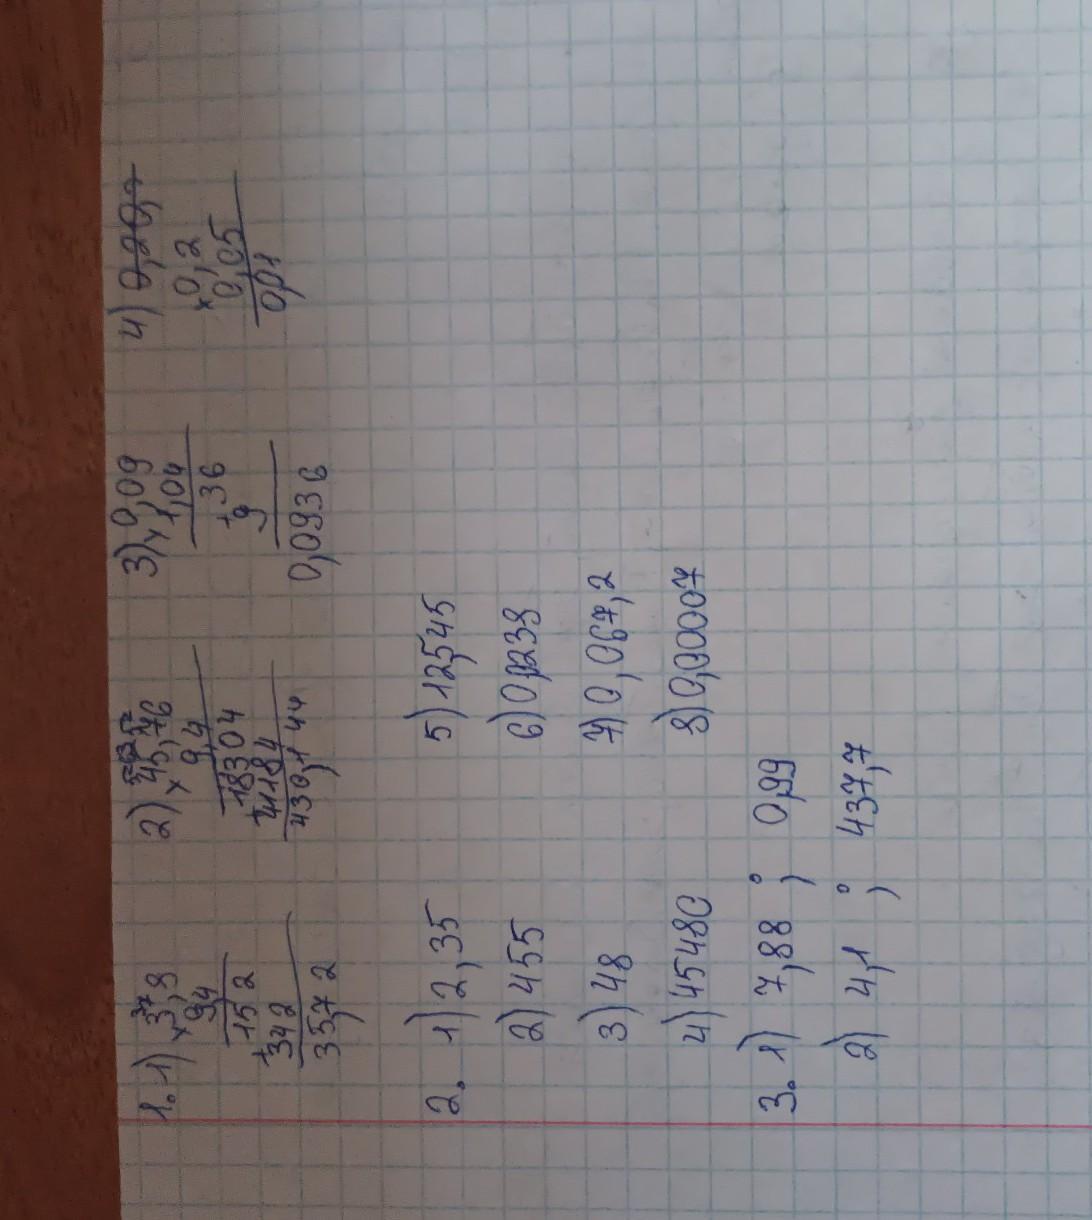 1. 1) 37
×3,8
94
152
+342
357,2
2) ×45,76
9,4
18304
+41184
430,144
3) ×0,09
1,04
+36
9
0,0936
4) 0,2 0,
×0,2
0,05
0,01
2. 1) 2,35 5) 12545
2) 455 6) 0,0238
3) 48 7) 0,067,2
4) 45480 8) 0,00007
3. 1) 7,88 ; 0,99
2) 4,1 ; 437,7